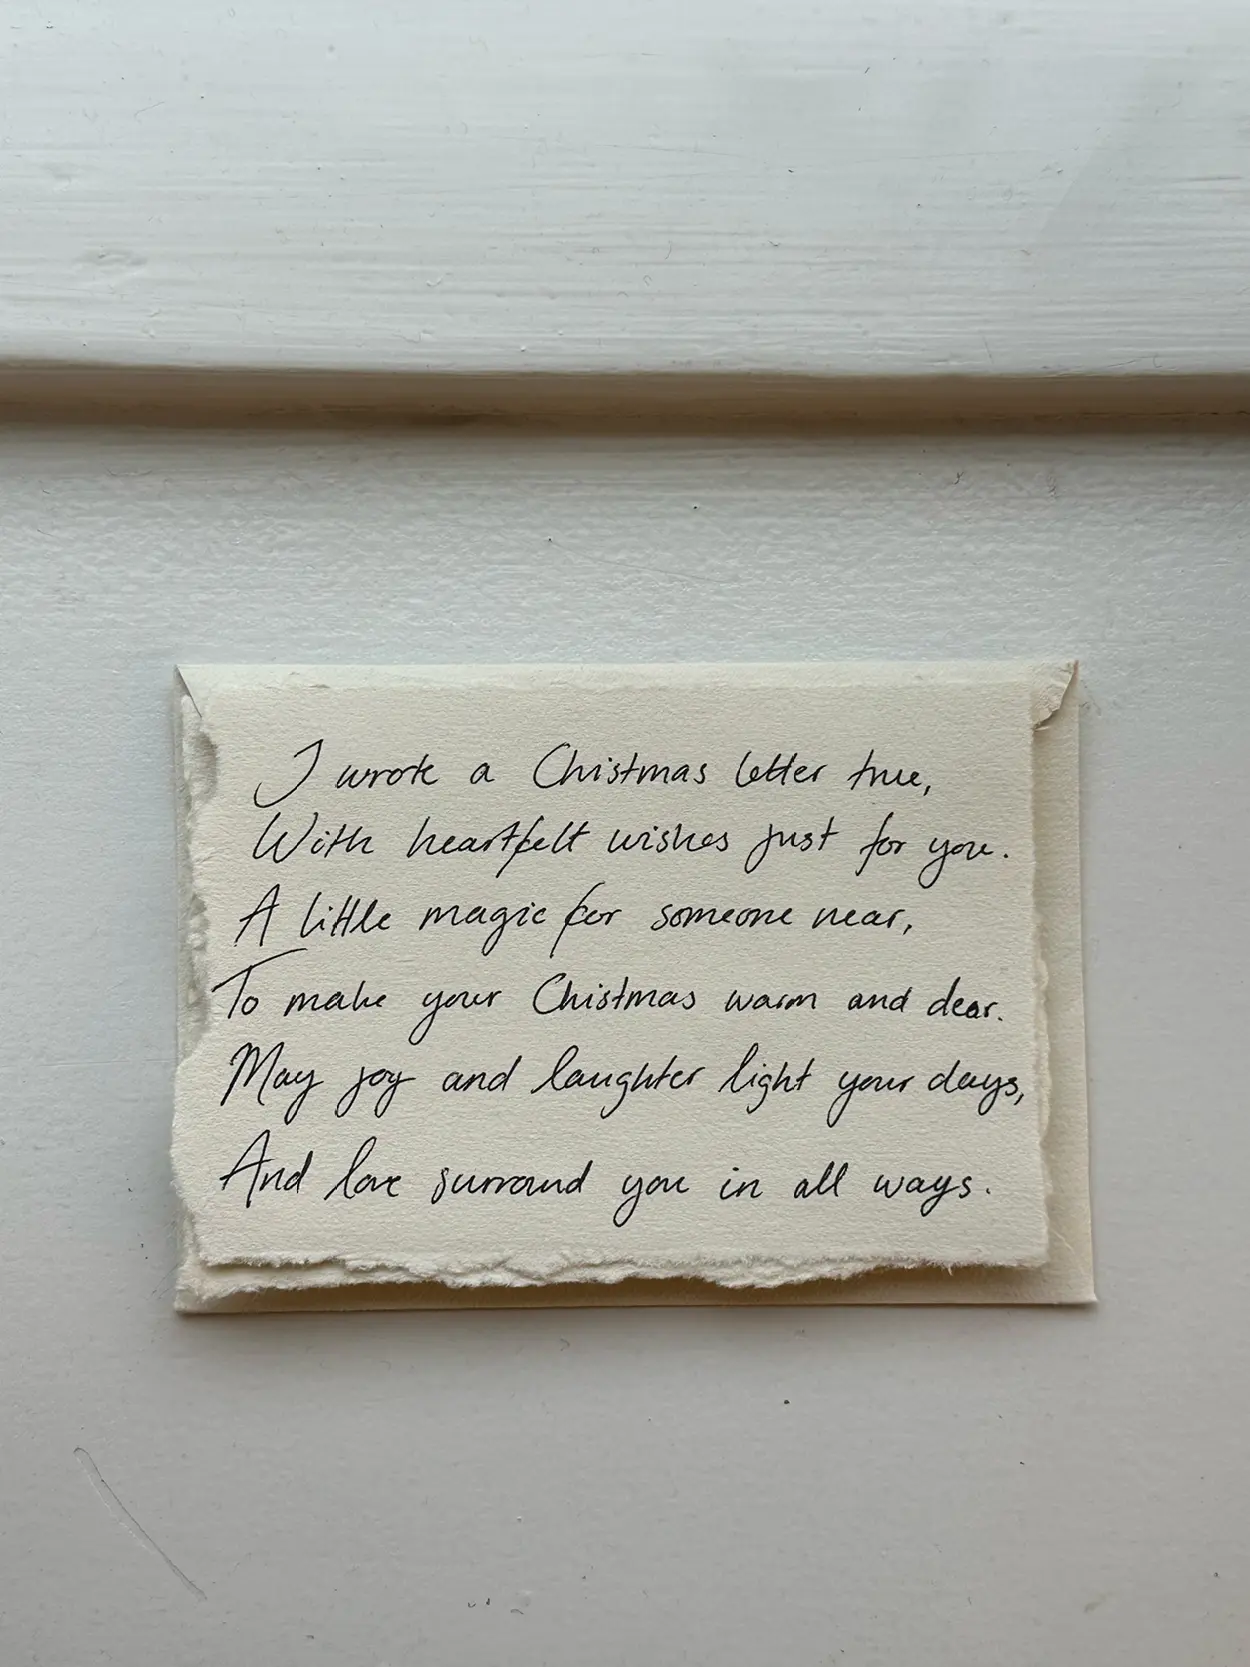 I wrote a Chistmas letter true,
With heartfelt wishes just for you.
A little magic for someone near,
To make your Chistmas warm and dear.
May joy and laughter light your days,
And love surround you in all ways.